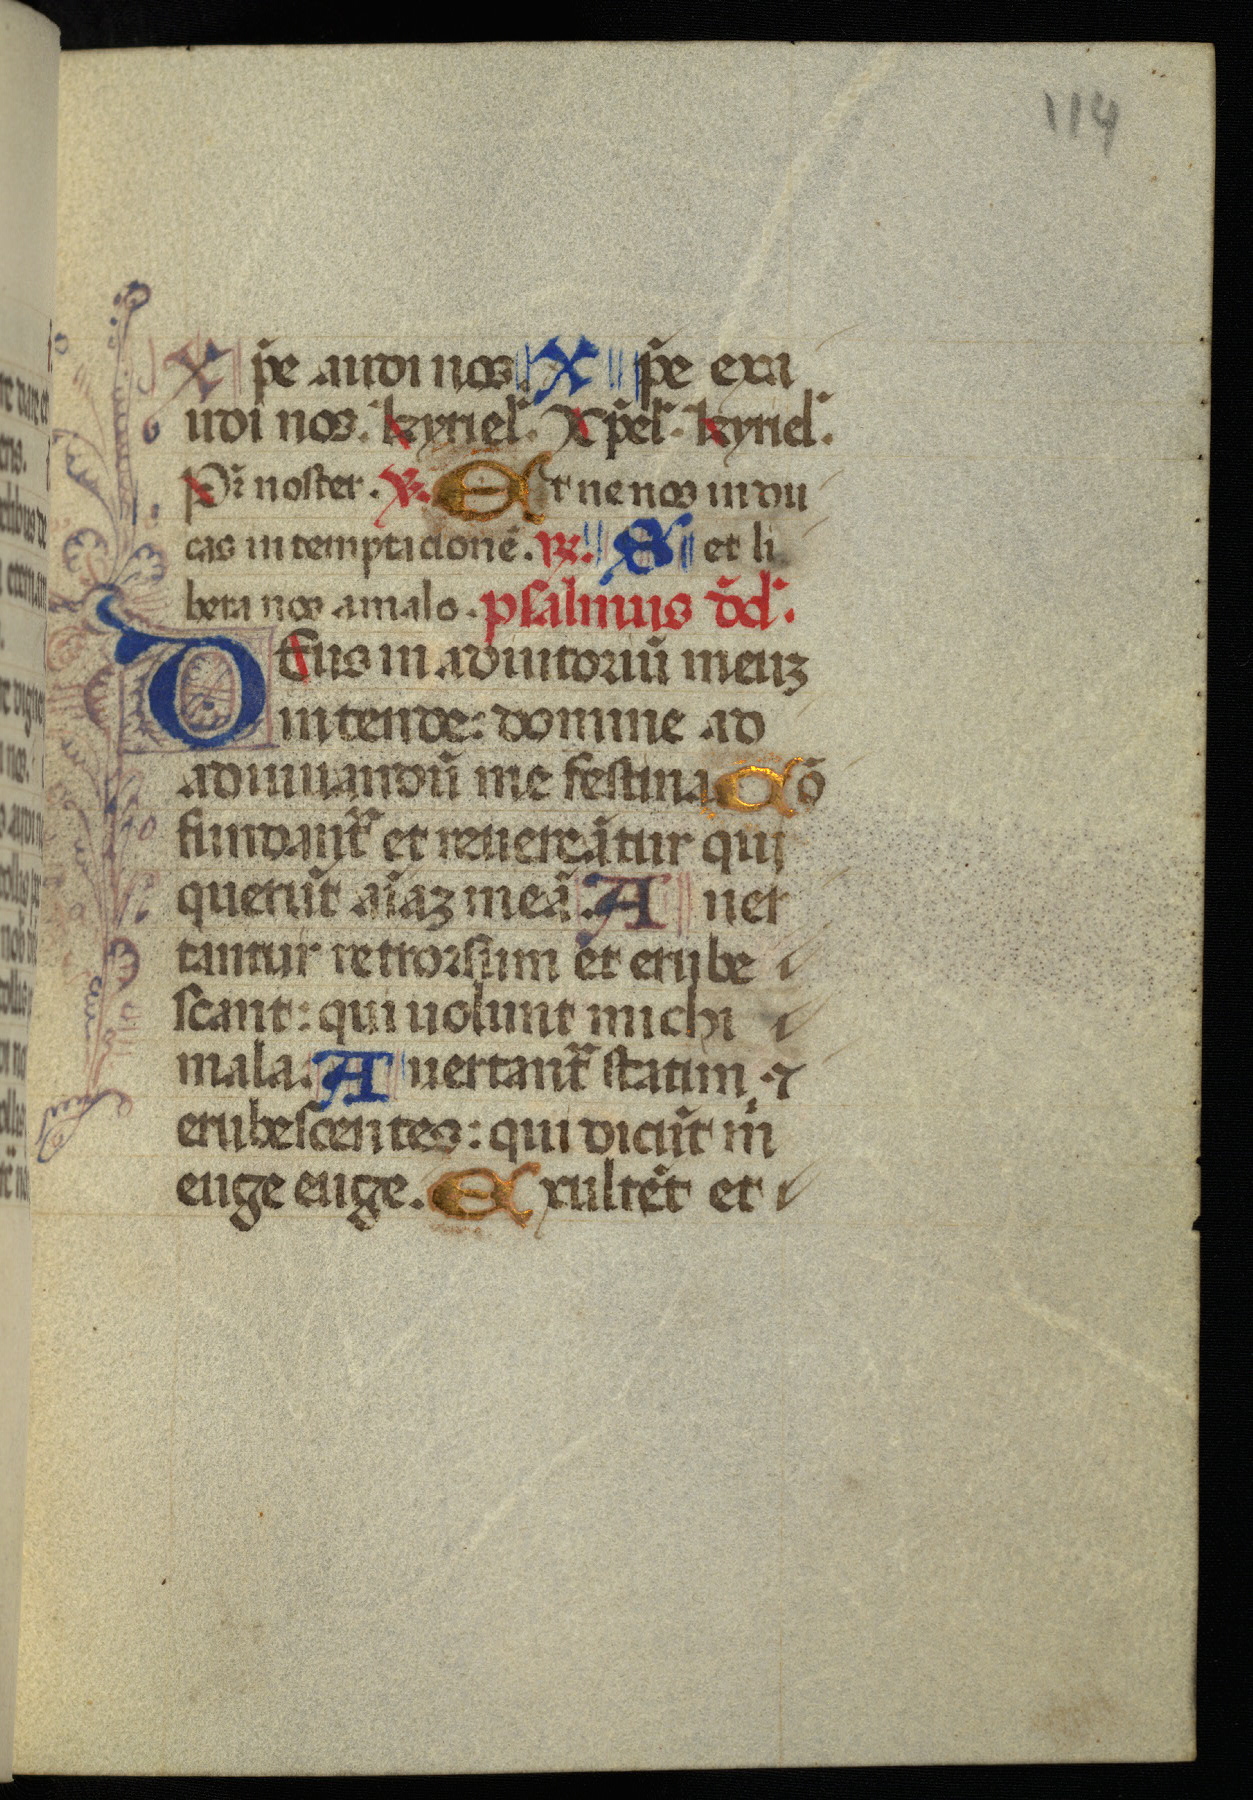 114
Xp̄e audi nos. Xp̄e exa
udi nos. kyriel̄. Xp̄el̄. kyriel̄.
Pr̄ noster. ℣. Et ne nos indu
cas in temptacionē. ℟. S et li
bera nos a malo. psalmus dd̄.
Deus in adiutoriū meuz
intende: domine ad
adiuuandū me festina. Cō
fundant̄ et reuereātur qui
querūt aīaz meā. Auer
tantur retrorsum et erube
scant: qui uolunt michi
mala. Auertant̄ statim ⁊
erubescentes: qui dicūt m̄
euge euge. Exultēt et